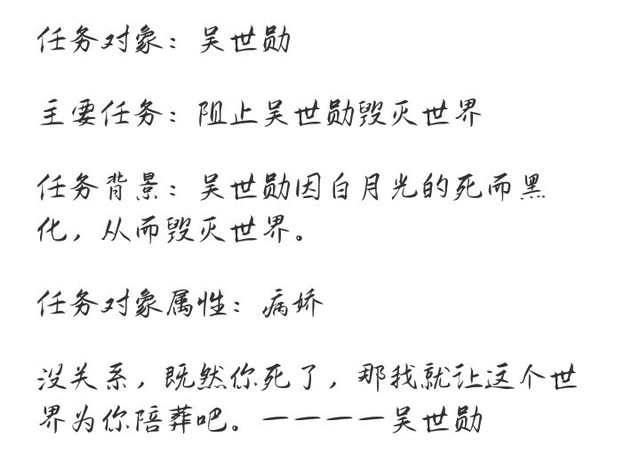 任务对象：吴世勋
主要任务：阻止吴世勋毁灭世界
任务背景：吴世勋因白月光的死而黑
化，从而毁灭世界。
任务对象属性：病娇
没关系，既然你死了，那我就让这个世
界为你陪葬吧。一一一一吴世勋